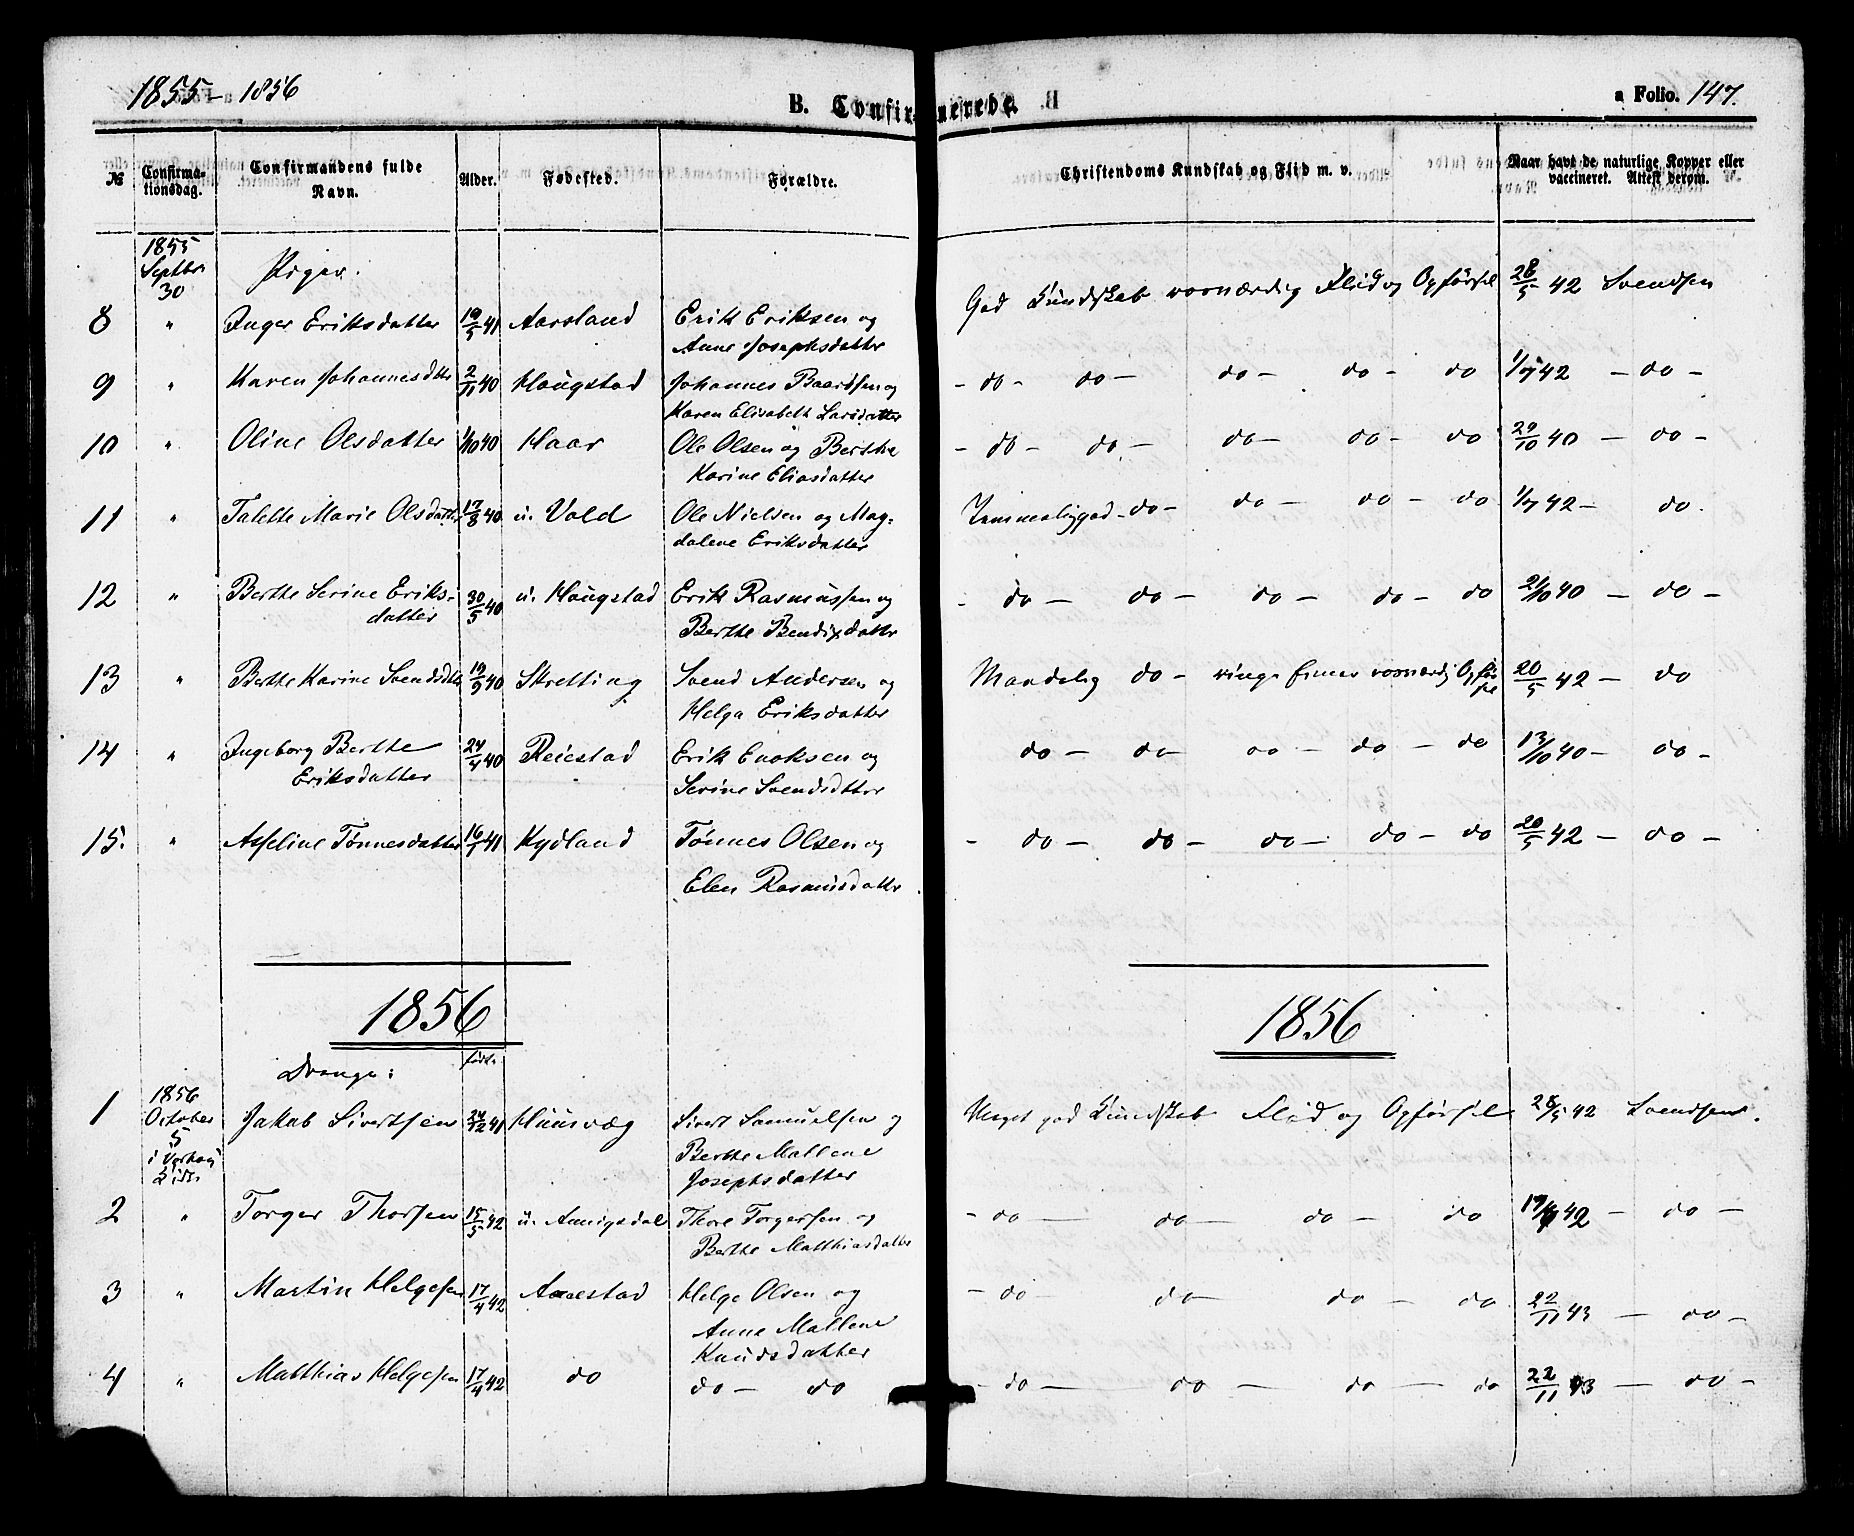 1855 – 1856
B. Confirmerede.
a Folio. 147.
№
Confirma-
tionsdag.
Confirmandens fulde
Navn.
Alder.
Fødested.
Forældre.
Christendoms Kundskab og Flid m. v.
Naar havt de naturlige Kopper eller
vaccineret. Attest derom.
1855
Septbr.
30
Piger.
8 " Inger Eriksdatter 19/5 41 Aarsland Erik Eriksen og God Kundskab Flid og Opførsel 28/5 42 Svendsen
Anne Josephsdatter
9 " Karen Johannesdtter 2/11 40 Haugstad Johannes Baardsen og - do - do - do - do - do 1/7 42 - do -
Karen Elisabeth Larsdatter
10 " Oline Olsdatter 1/10 40 Haar Ole Olsen og Berthe - do - do - do - do - do 29/10 40 - do -
Karine Eliasdatter
11 " Talette Marie Olsdatt. 17/8 40 u. Vold Ole Nielsen og Mag- Temmelig god - do - do - do - do 1/7 42 - do.
dalene Eriksdatter
12 " Berthe Serine Eriks- 30/5 40 u. Haugstad Erik Rasmussen og - do - do - do - do - do 21/10 40 - do -
datter Berthe Bendixdattr
13 " Berthe Karine Svendsdtr 19/9 40 Skretting Svend Andersen og Maadelig do - ringe Opfør- 20/5 42 - do
sel
Helga Eriksdatter
14 " Ingeborg Berthe 24/4 40 Reiestad Erik Enoksen og do - do - do - do - do 13/10 40 - do -
Eriksdatter Serine Svendsdtter
15. " Asseline Tønnesdatter 16/1 41 Kydland Tønnes Olsen og - do - do - do - do - do 20/5 42 - do -
Elen Rasmusdattr
1856
1856
Drenge:
født.
1 1856 Jakob Sivertsen 24/2 41 Sivert Samuelsen og Meget god Kundskab Flid og Opførsel 28/5 42 Svendsen.
October
5 Berthe Mallene
Josephsdatter
2 " Torger Thorsen 15/5 42 Thore Torgersen og - do - do - do - do 42 - do -
Berthe Matthiasdatter
3 " Martin Helgesen 17/4 42 Aarestad Helge Olsen og - do - do - do - do 22/11 43 - do -
Anne Mallene
Knudsdatter
4 " Matthias Helgesen 17/4 42 do do - do - do - do - do - do 22/11 43 - do -